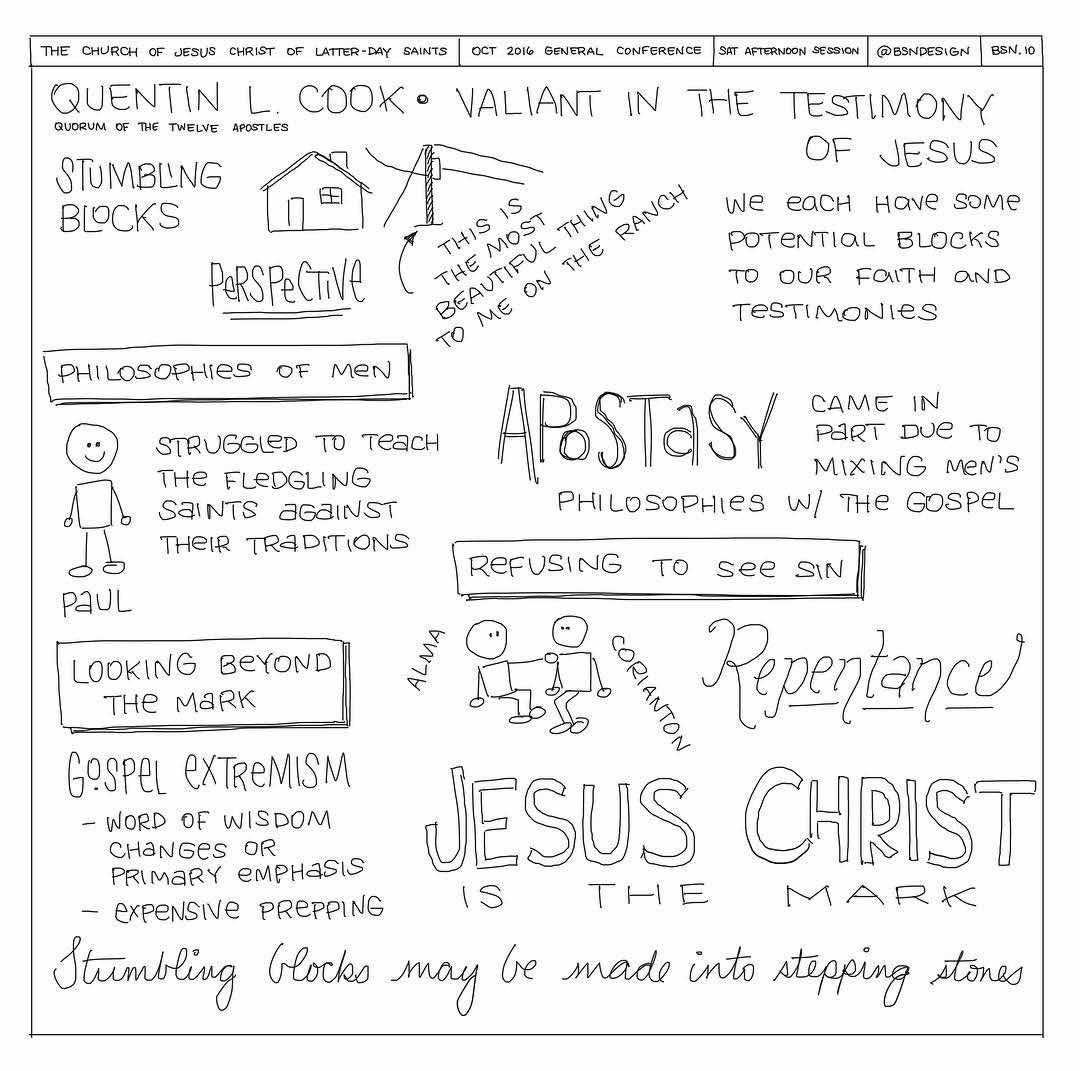 THE CHURCH OF JESUS CHRIST OF LATTER-DAY SAINTS
OCT 2016 GENERAL CONFERENCE
SAT AFTERNOON SESSION
@BSNDESIGN
BSN.10
QUENTIN L. COOK • VALIANT IN THE TESTIMONY
OF JESUS
QUORUM OF THE TWELVE APOSTLES
STUMBLING
BLOCKS
PERSPECTIVE
THIS IS
THE MOST
BEAUTIFUL THING
TO ME ON THE RANCH
WE EACH HAVE SOME
POTENTIAL BLOCKS
TO OUR FAITH AND
TESTIMONIES
PHILOSOPHIES OF MEN
STRUGGLED TO TEACH
THE FLEDGLING
SAINTS AGAINST
THEIR TRADITIONS
PAUL
APOSTASY
CAME IN
PART DUE TO
MIXING MEN'S
PHILOSOPHIES W/ THE GOSPEL
REFUSING TO SEE SIN
ALMA
CORIANTON
Repentance
LOOKING BEYOND
THE MARK
GOSPEL EXTREMISM
- WORD OF WISDOM
CHANGES OR
PRIMARY EMPHASIS
- EXPENSIVE PREPPING
JESUS CHRIST
IS THE MARK
Stumbling blocks may be made into stepping stones